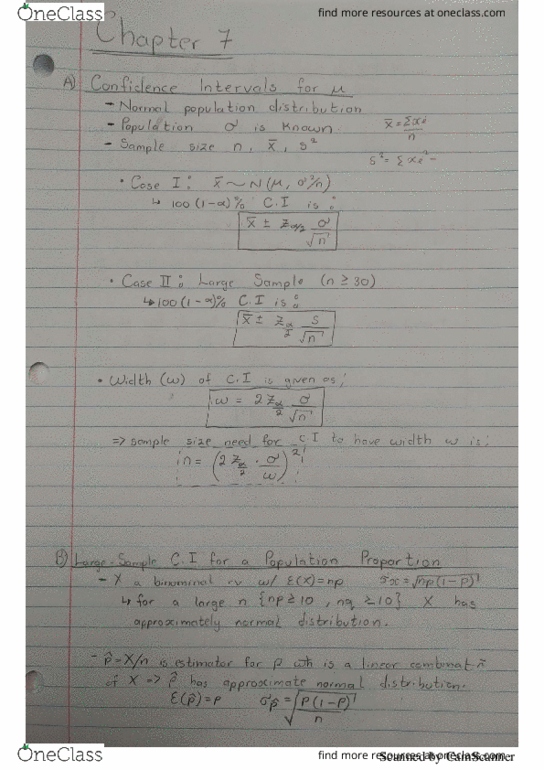 OneClass
find more resources at oneclass.com
Chapter 7
A) Confidence Intervals for μ
- Normal population distribution
- Population σ is known
x̄ = Σxi/n
- Sample size n, x̄, s²
s² = Σxi² -
• Case I: x̄ ~ N(μ, σ²/n)
↳ 100(1-α)% C.I is:
x̄ ± Zα/2 σ/√n
• Case II: Large Sample (n ≥ 30)
↳ 100(1-α)% C.I is:
x̄ ± Zα/2 s/√n
• Width (w) of C.I is given as;
w = 2Zα/2 σ/√n
=> sample size need for C I to have width w is;
n = (2 Zα/2 · σ/w)²
B) Large-Sample C.I for a Population Proportion
- X a binominal rv w/ E(X)=np σx=√np(1-P)
↳ for a large n {np≥10, nq≥10} X has
approximately normal distribution.
- p̂=X/n is estimator for p wh is a linear combinat.ñ
of X => p̂ has approximate normal distribution.
E(p̂)=p σp̂=√P(1-P)/n
OneClass
find more resources at oneclass.com
Scanned by CamScanner